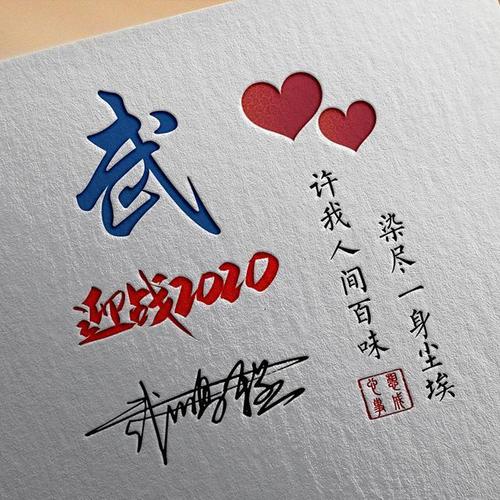 武
迎战2020
染尽一身尘埃
许我人间百味
心想事成